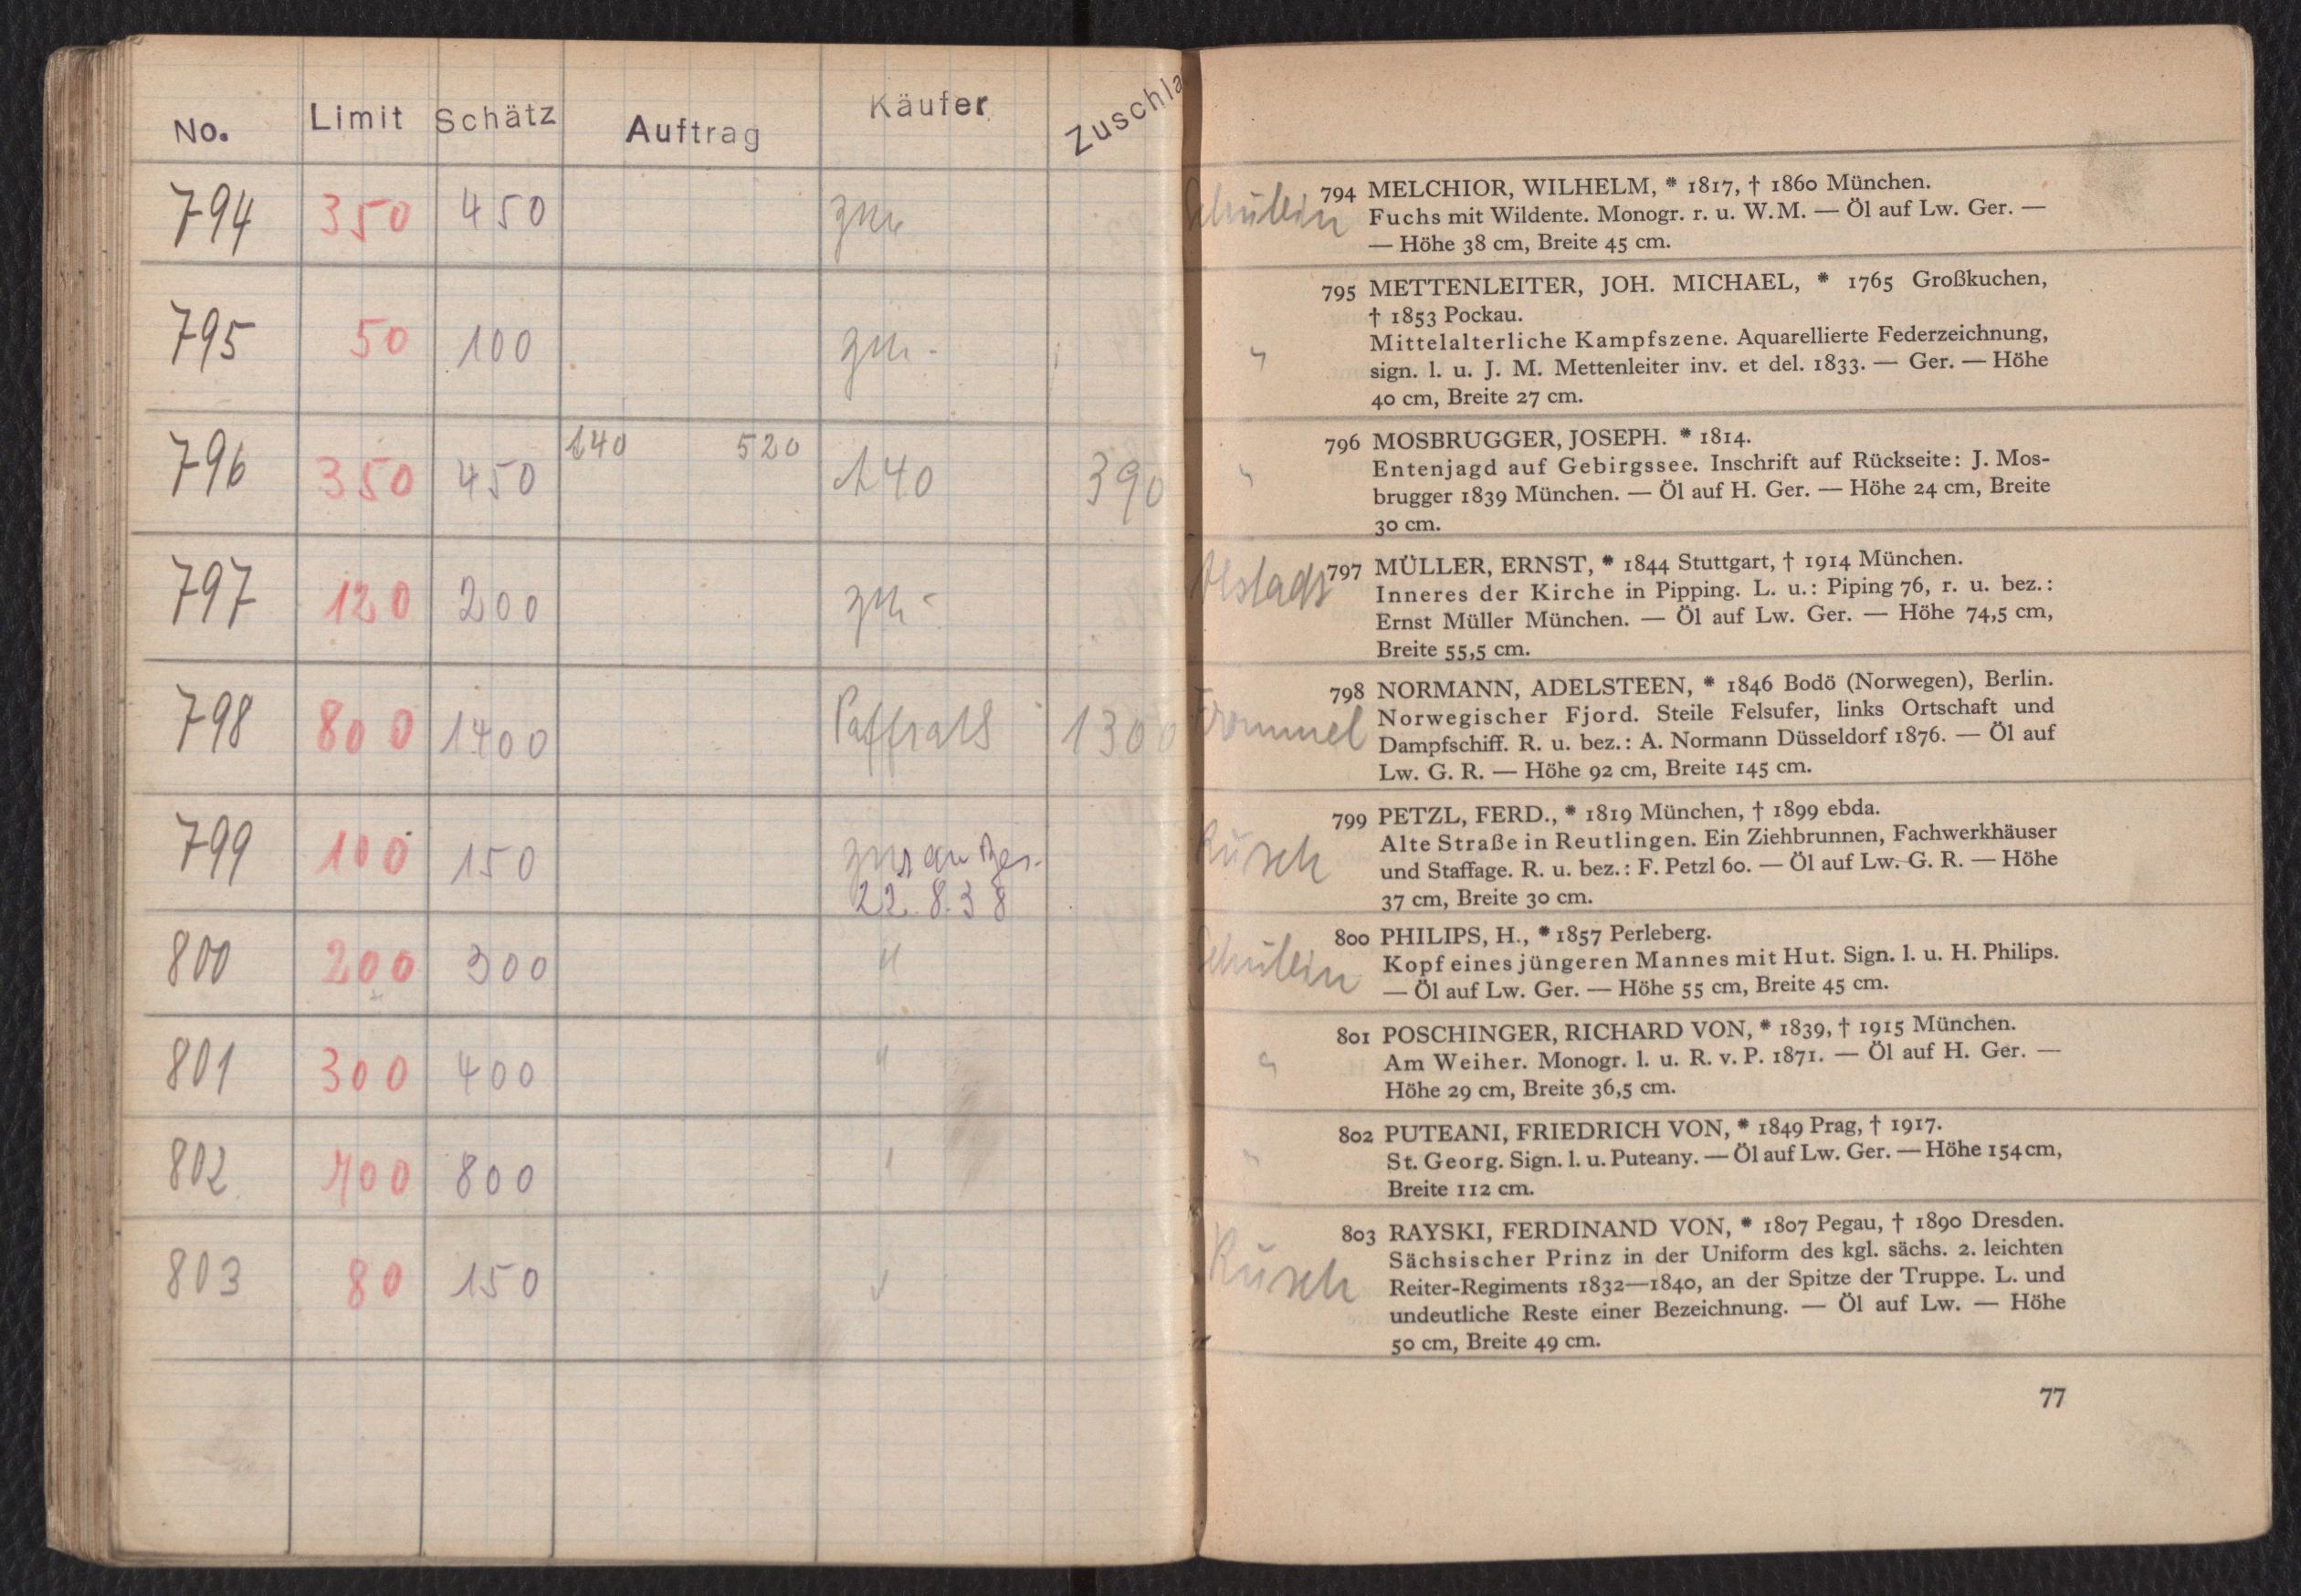 No. Limit Schätz Auftrag Käufer Zuschla
794 350 450 zur
795 50 100 zur.
796 350 450 140 520 140 390
797 120 200 zur
798 800 1400 Paffrath 1300
799 100 150 zur an Bes.
22.8.38
800 200 300 "
801 300 400 "
802 400 800 "
803 80 150 "
Schülein
794 MELCHIOR, WILHELM, * 1817, † 1860 München.
Fuchs mit Wildente. Monogr. r. u. W.M. — Öl auf Lw. Ger. —
— Höhe 38 cm, Breite 45 cm.
795 METTENLEITER, JOH. MICHAEL, * 1765 Großkuchen,
† 1853 Pockau.
Mittelalterliche Kampfszene. Aquarellierte Federzeichnung,
" sign. l. u. J. M. Mettenleiter inv. et del. 1833. — Ger. — Höhe
40 cm, Breite 27 cm.
796 MOSBRUGGER, JOSEPH. * 1814.
" Entenjagd auf Gebirgssee. Inschrift auf Rückseite: J. Mos-
brugger 1839 München. — Öl auf H. Ger. — Höhe 24 cm, Breite
30 cm.
797 MÜLLER, ERNST, * 1844 Stuttgart, † 1914 München.
Inneres der Kirche in Pipping. L. u.: Piping 76, r. u. bez.:
Ernst Müller München. — Öl auf Lw. Ger. — Höhe 74,5 cm,
Breite 55,5 cm.
798 NORMANN, ADELSTEEN, * 1846 Bodö (Norwegen), Berlin.
Frommel Norwegischer Fjord. Steile Felsufer, links Ortschaft und
Dampfschiff. R. u. bez.: A. Normann Düsseldorf 1876. — Öl auf
Lw. G. R. — Höhe 92 cm, Breite 145 cm.
799 PETZL, FERD., * 1819 München, † 1899 ebda.
Rüsch Alte Straße in Reutlingen. Ein Ziehbrunnen, Fachwerkhäuser
und Staffage. R. u. bez.: F. Petzl 60. — Öl auf Lw. G. R. — Höhe
37 cm, Breite 30 cm.
800 PHILIPS, H., * 1857 Perleberg.
Schülein Kopf eines jüngeren Mannes mit Hut. Sign. l. u. H. Philips.
— Öl auf Lw. Ger. — Höhe 55 cm, Breite 45 cm.
801 POSCHINGER, RICHARD VON, * 1839, † 1915 München.
" Am Weiher. Monogr. l. u. R. v. P. 1871. — Öl auf H. Ger. —
Höhe 29 cm, Breite 36,5 cm.
802 PUTEANI, FRIEDRICH VON, * 1849 Prag, † 1917.
" St. Georg. Sign. l. u. Puteany. — Öl auf Lw. Ger. — Höhe 154 cm,
Breite 112 cm.
803 RAYSKI, FERDINAND VON, * 1807 Pegau, † 1890 Dresden.
Rüsch Sächsischer Prinz in der Uniform des kgl. sächs. 2. leichten
Reiter-Regiments 1832—1840, an der Spitze der Truppe. L. und
undeutliche Reste einer Bezeichnung. — Öl auf Lw. — Höhe
50 cm, Breite 49 cm.
77